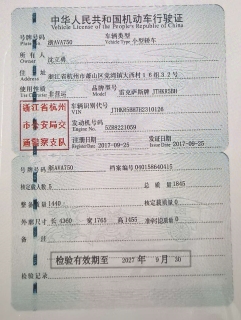 中华人民共和国机动车行驶证
Vehicle License of the People's Republic of China
号牌号码 浙AVA750 车辆类型 小型轿车
Plate No. Vehicle Type
所有人 沈立勇
Owner
住址 浙江省杭州市萧山区党湾镇大西村16组32号
使用性质 非营运 品牌型号 雷克萨斯牌
Model
浙江省杭州 车辆识别代号
VIN
市公安局交 发动机号码 5Z88221059
Engine No.
通警察支队 注册日期 2017-09-25 发证日期 2017-09-25
Register Date Issue Date
号牌号码 浙AVA750 档案编号 040158640415
核定载人数 5 总质量 1845
整备质量 1440 核定载质量 0
外廓尺寸 长 4360 宽 1765 高 1455 准牵引总质量 0
备注
检验有效期至 2027 年 9 月 30
检验记录